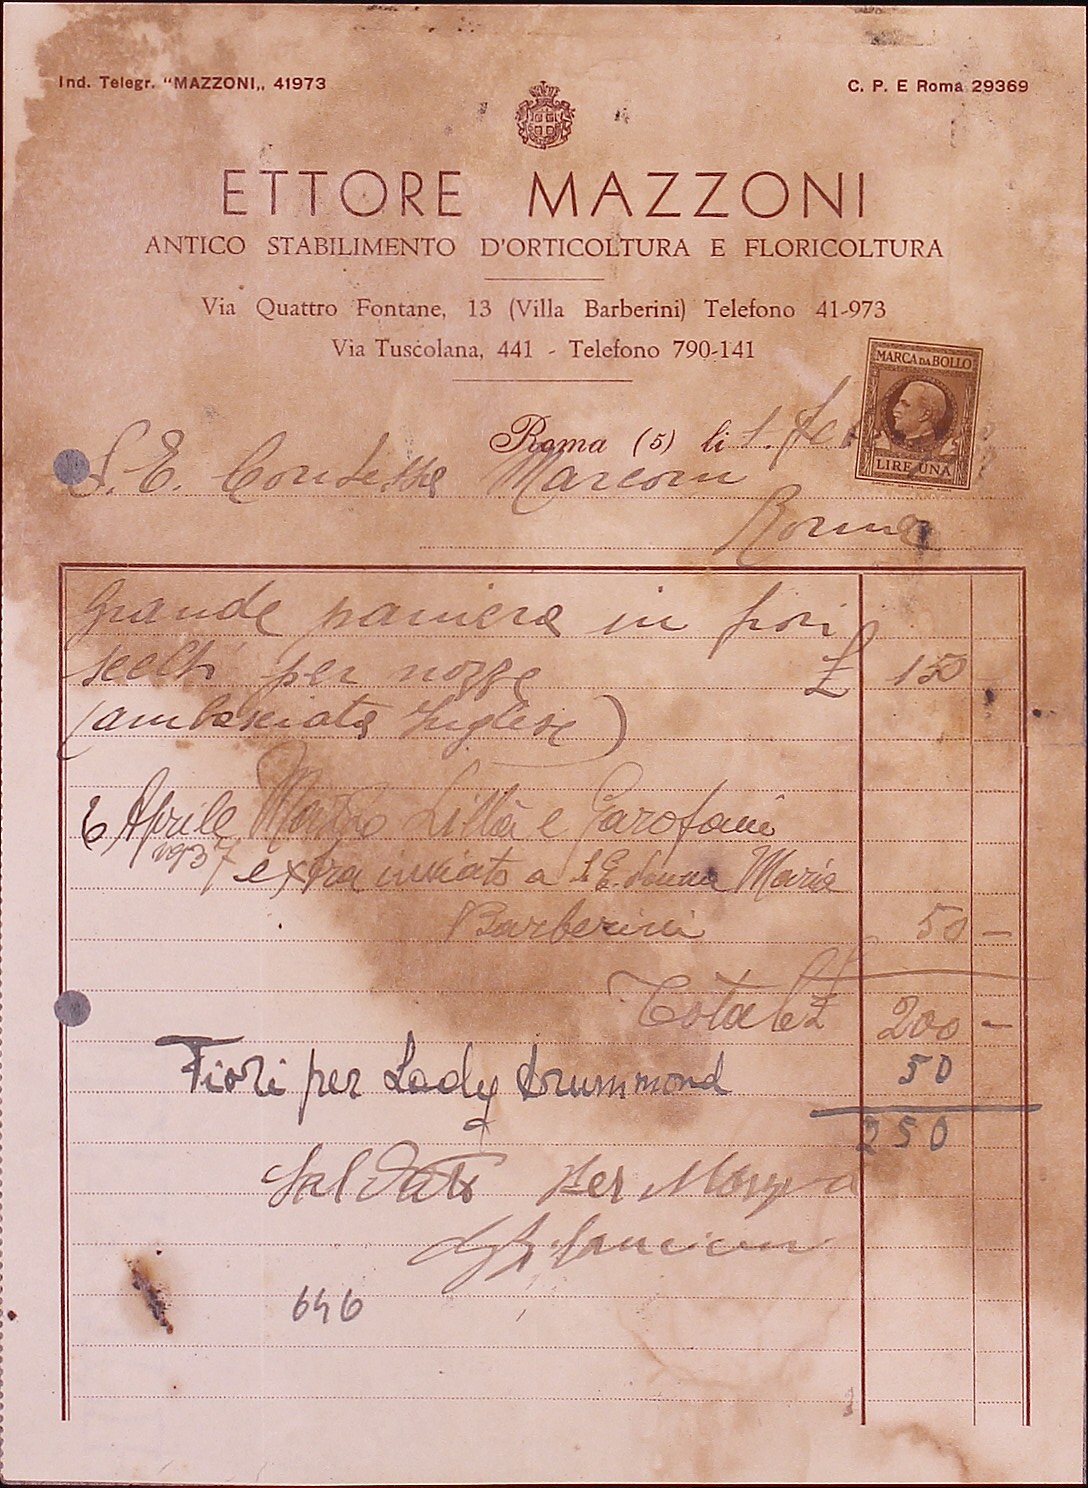 Ind. Telegr. "MAZZONI„ 41973
C. P. E Roma 29369
ETTORE MAZZONI
ANTICO STABILIMENTO D'ORTICOLTURA E FLORICOLTURA
Via Quattro Fontane, 13 (Villa Barberini) Telefono 41-973
Via Tuscolana, 441 - Telefono 790-141
MARCA DA BOLLO
LIRE UNA
Roma (5) li 1.
S. E. Contessa Marconi
Roma
Grande paniera in fiori
scelti per nozze £ 150
(ambasciata Inglese)
6 Aprile Mazzo Lillà e Garofani
1937 extra inviato a S. E. donna Maria
Barberini 50 —
Totale £ 200 —
Fiori per Lady Drummond 50
250
Saldato Per Mazzoni
646